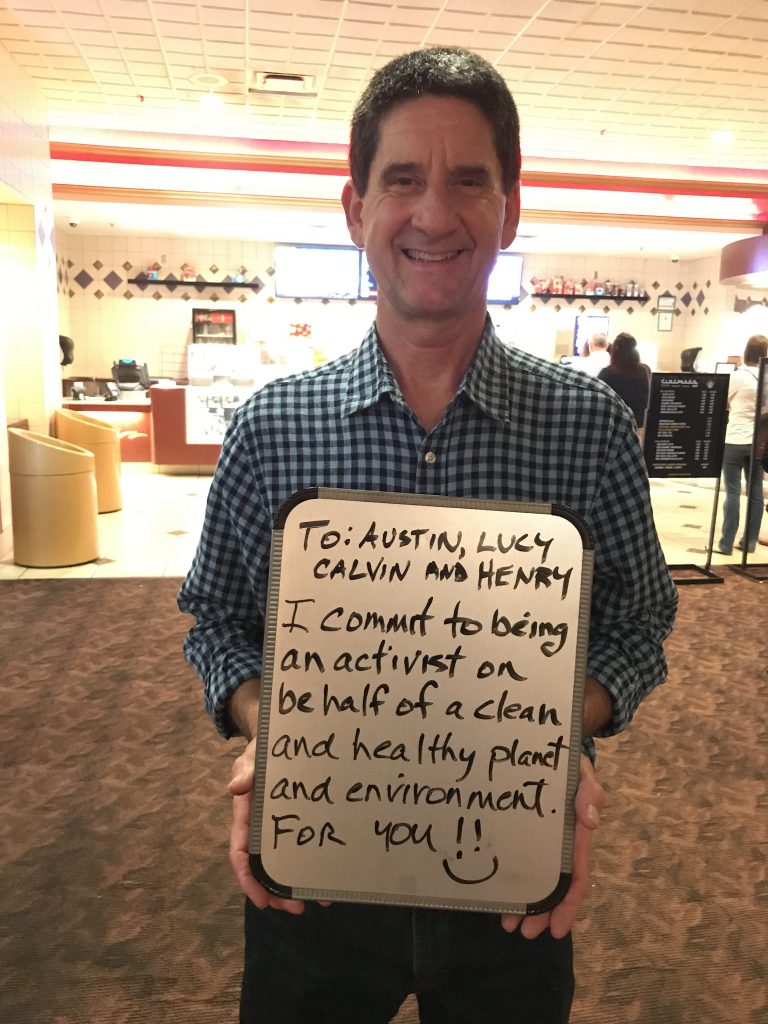 To: AUSTIN, LUCY
CALVIN AND HENRY
I commit to being
an activist on
behalf of a clean
and healthy planet
and environment.
FOR YOU !!